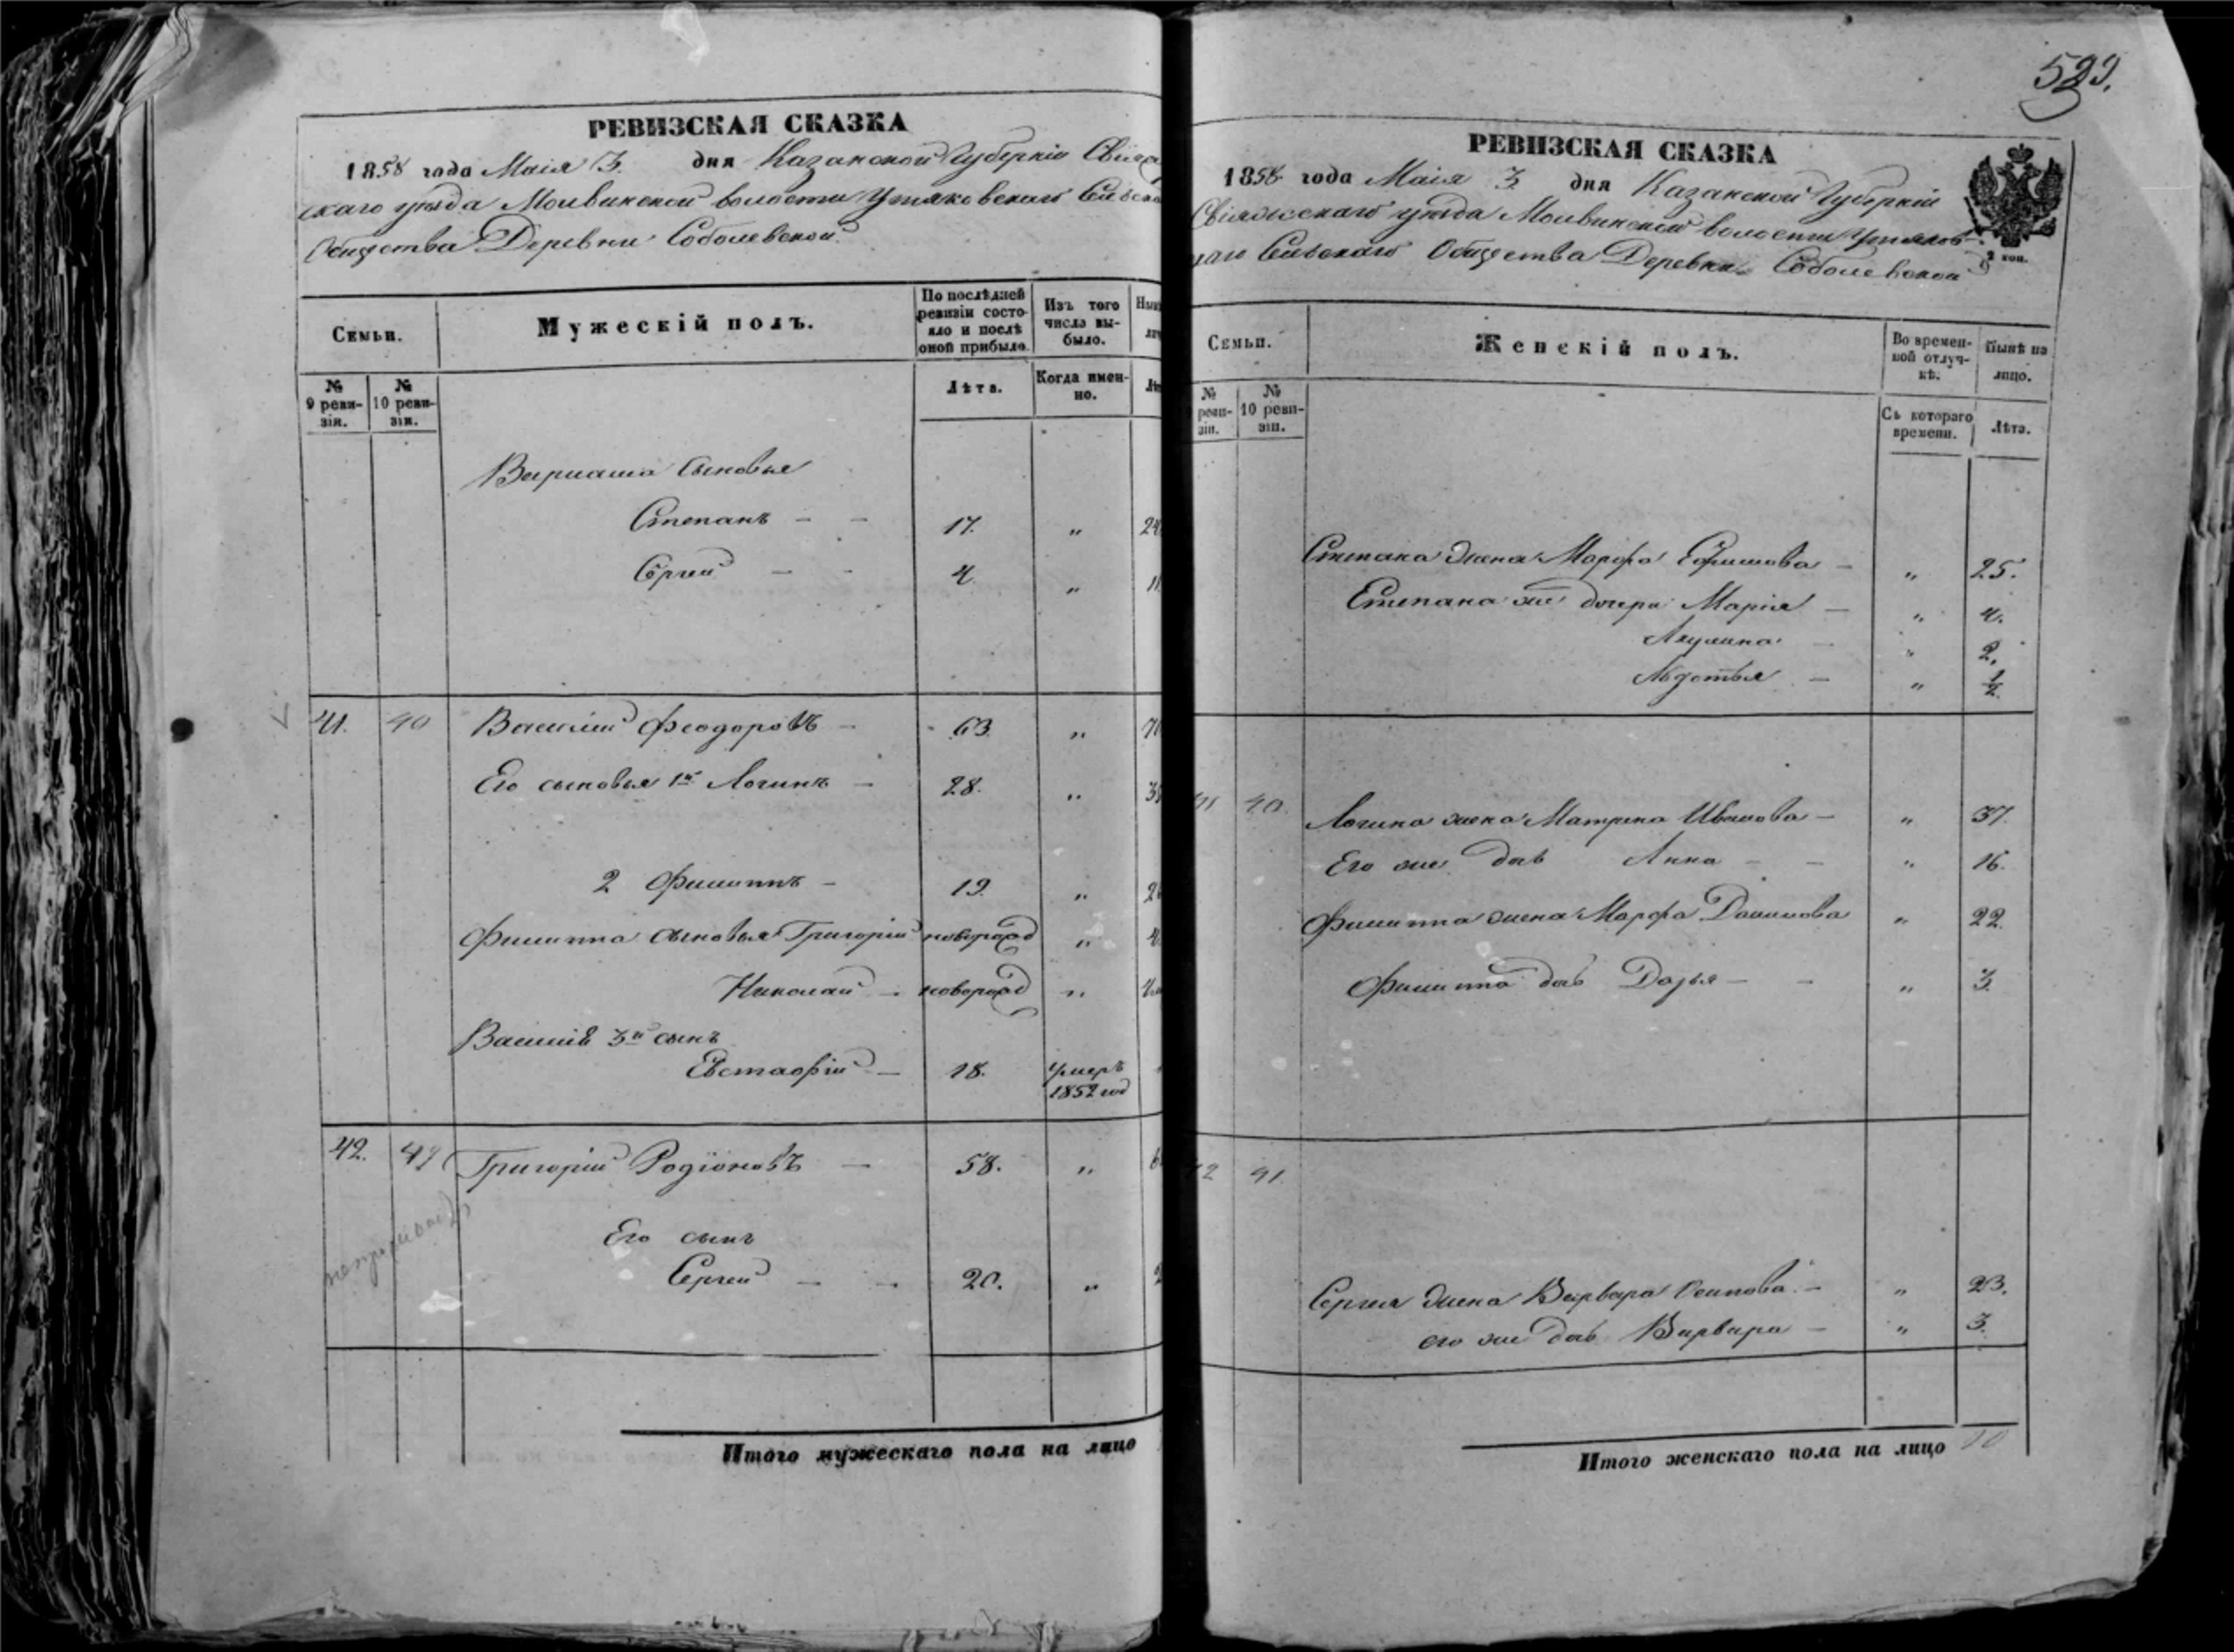 РЕВИЗСКАЯ СКАЗКА
1858 года Маія 3. дня Казанской Губерніи Свіяж
скаго уѣзда Молвинской волости Утяковскаго Сельска
Общества Деревни Соболевской
Семьи.
Мужескій полъ.
По послѣдней ревизіи состояло и послѣ оной прибыло.
Изъ того числа выбыло.
№ 9 ревизіи.
№ 10 ревизіи.
Лѣта.
Когда именно.
сыновья
Степанъ — — 17. „ 24
Сергей — — 4. „ 11
41. 40 Василій Феодоровъ — 63. „
Его сыновья 1й Логинъ — 28. „
2 Филиппъ — 19. „
Филиппа сыновья Григорій новорожд „
Николай — новорожд „
Василія 3й сынъ
Евстафій — 18. умеръ
1852 год
42. 41 Григорій Родіоновъ — 58. „
Его сынъ
Сергей — — 20. „
Итого мужескаго пола на лицо
529.
РЕВИЗСКАЯ СКАЗКА
1858 года Маія 3 дня Казанской Губерніи
Свіяжскаго уѣзда Молвинской волости Утяков
скаго Сельскаго Общества Деревни Соболевской
2 коп.
Семьи.
Женскій полъ.
Во временной отлучкѣ.
Нынѣ на лицо.
№ ревизіи.
№ 10 ревизіи.
Съ котораго времени.
Лѣта.
Степана жена Марфа Ефимова — „ 25.
Степана же дочери Марія — „ 4.
Акулина — „ 2.
Авдотья — „ ½
41 40. Логина жена Матрена Иванова — „ 37.
Его же дочь Анна — — „ 16.
Филиппа жена Марфа Данилова „ 22.
Филиппа дочь Дарья — — „ 3.
42 41.
Сергея жена Варвара Осипова — „ 23.
его же дочь Варвара — „ 3.
Итого женскаго пола на лицо 10